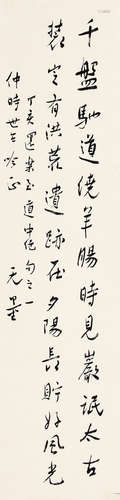 千盤馳道繞羊腸時見巖氓太古
裝定有洪荒遺跡在夕陽長貯好風光
丁亥還業玉道中絕句之一
仲時世兄吟正